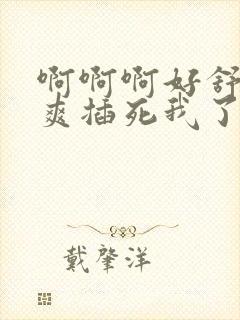 啊啊啊好舒
爽插死我了
戴肇洋